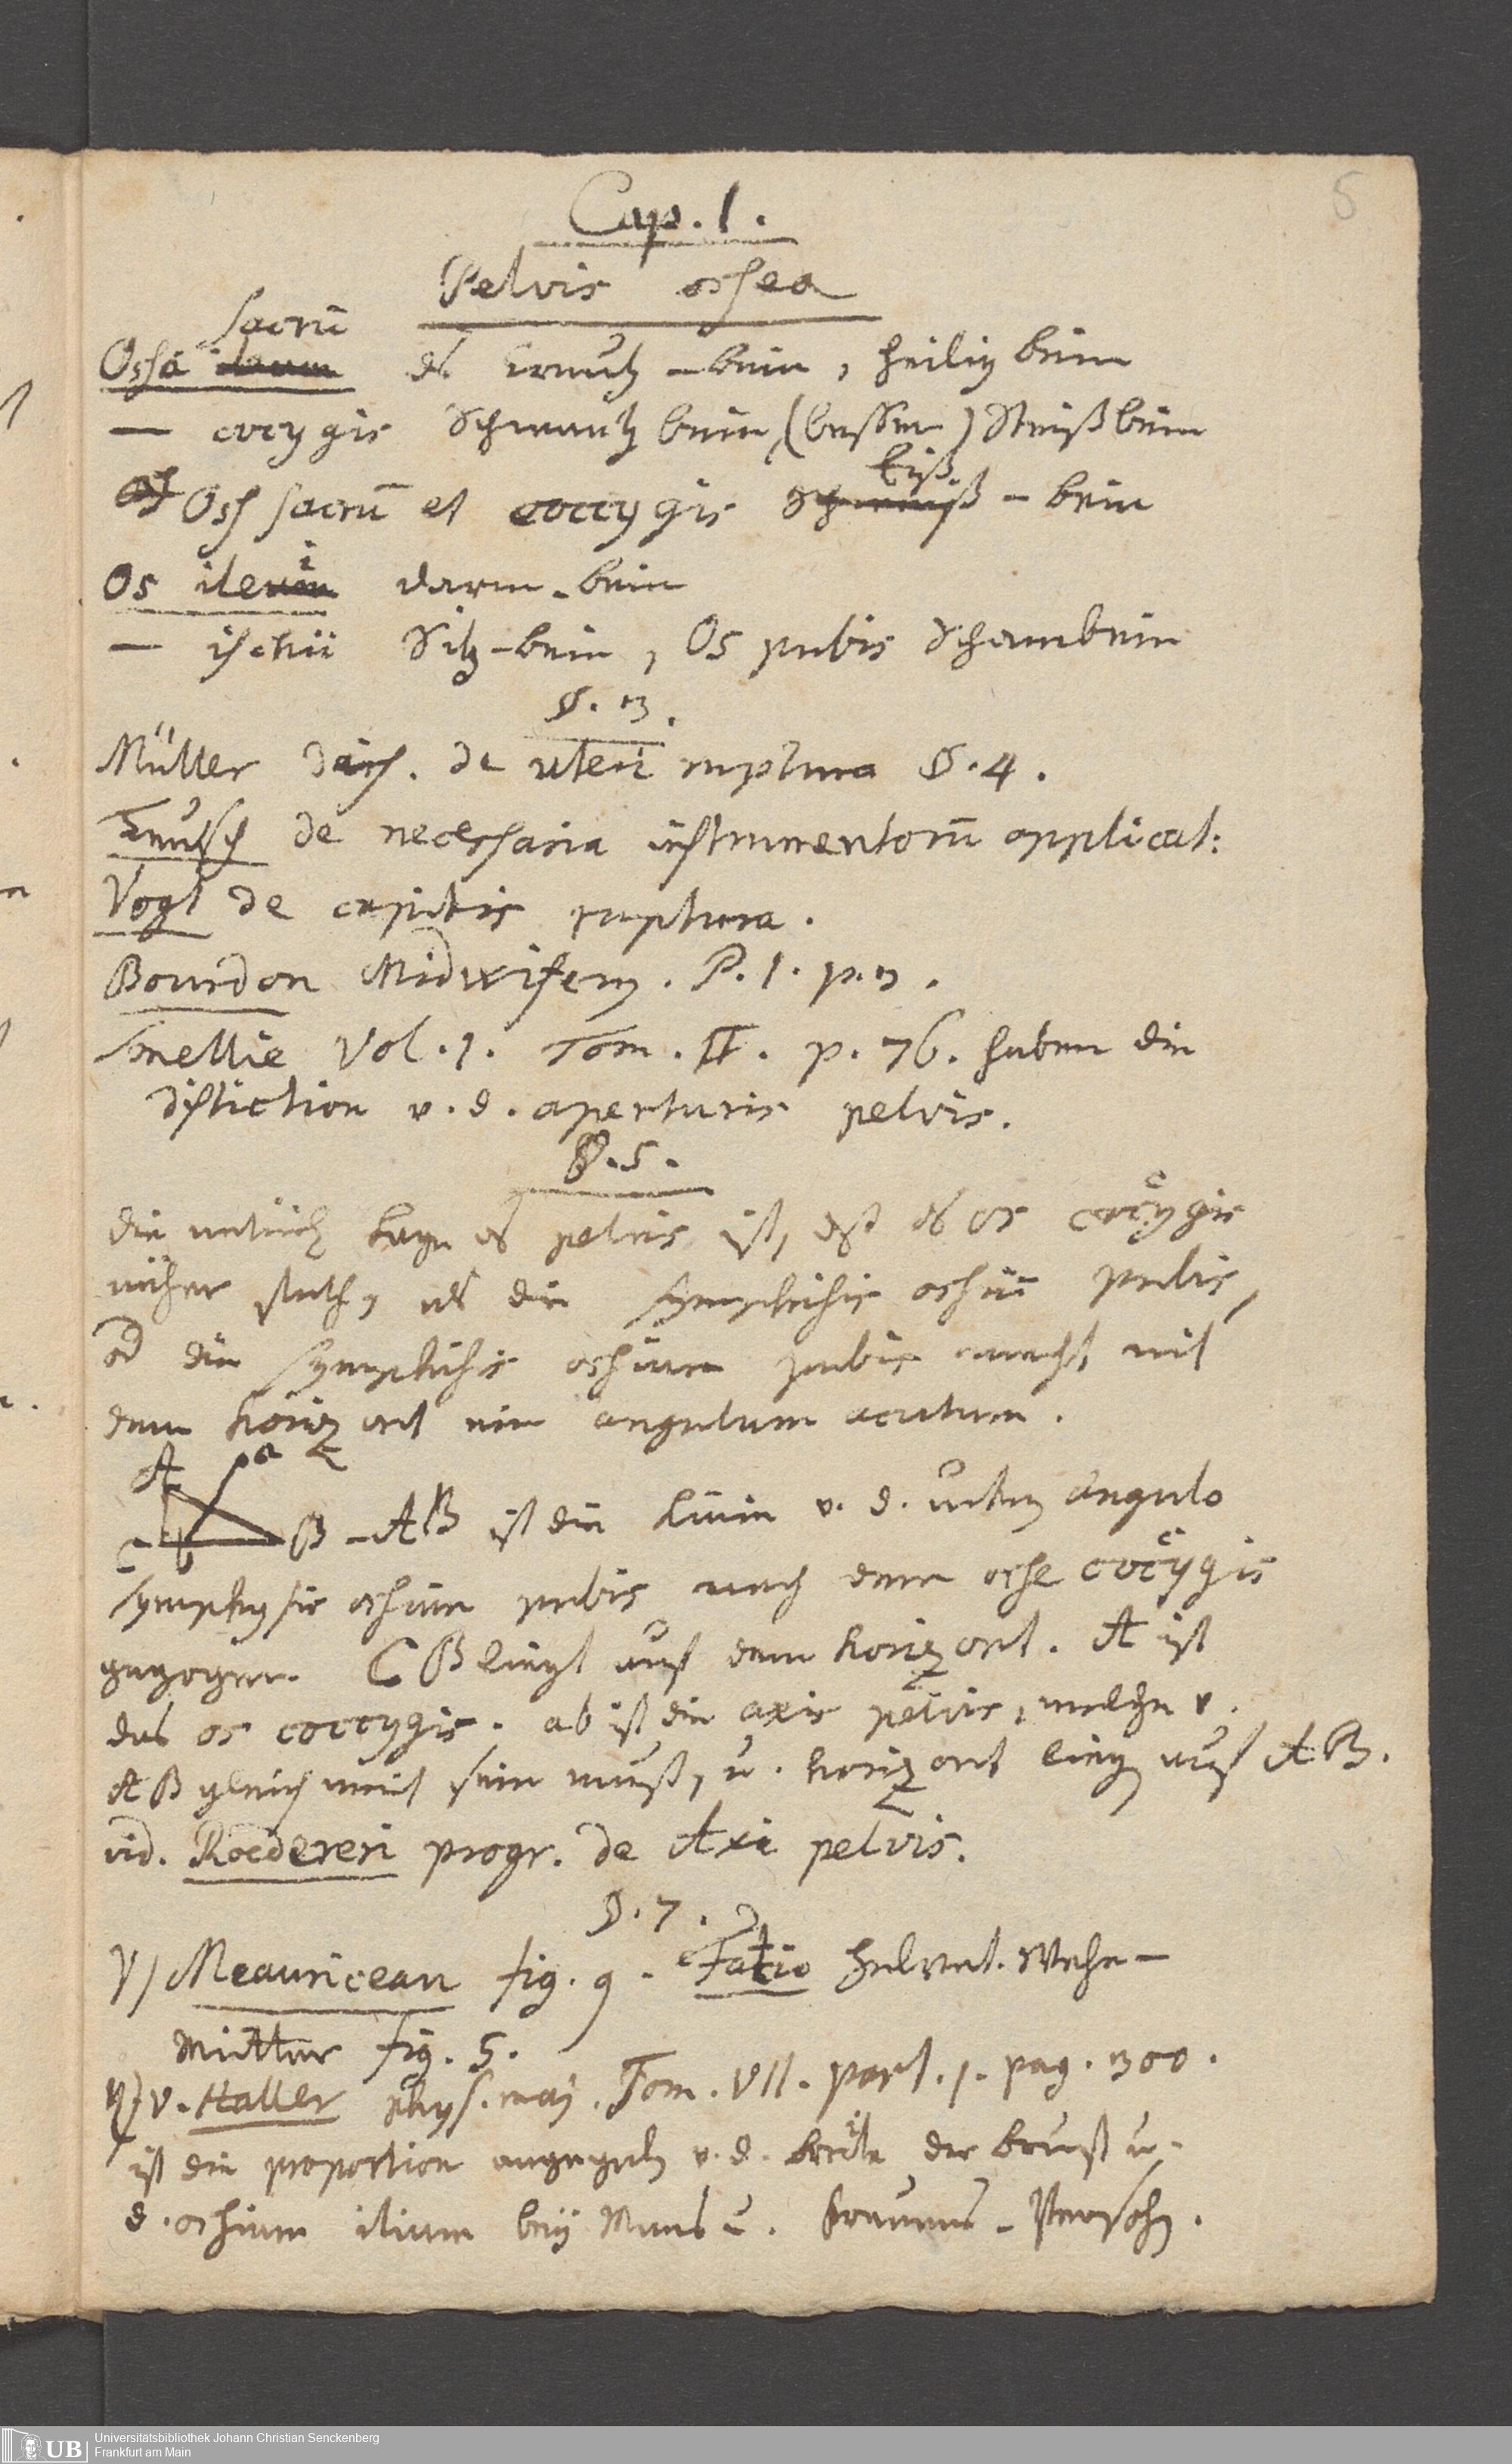 5
Cap. 1.
Pelvis ossea
sacrū
Ossa ileum ds Kreutz-bein, heilig bein
— coccygis Schwantz bein, (besser) Steißbein
Oss sacrū et coccygis -bein
Os ilei darm-bein
— ischii Sitz-bein, Os pubis Schambein
§. 3.
Müller diss. de uteri ruptura §. 4.
de necessaria instrumentorū applicat:
Vogt de capitis ruptura.
Bourdon Midwifery. P. 1. p. 3.
Smellie Vol. 1. Tom. II. p. 76. haben die
distiction v. d. aperturis pelvis.
§. 5.
die natürl lage ds pelvis ist, dß ds os coccygis
näher steth, als die symphisis ossiū pubis,
od die symphisis ossium pubis macht mit
dem horizont ein angulum acutum.
A a
C b B - AB ist die linie v. d. untern angulo
symphysis ossium pubis nach dem osse coccygis
gezogen. CB liegt auf dem horizont. A ist
das os coccygis. ab ist die axis pelvis, welche v.
AB gleich weit sein muß, u. horizont lieg auf AB.
vid. Roedereri progr. de Axi pelvis.
§. 7.
V) Meauricean fig. 9. Fatio Helvet. Wehe-
Mutter fig. 5.
v. Haller phys. maj. Tom. VII. part. 1. pag. 300.
ist die proportion angegeb v. d. breite der brust u.
d. ossium ilium beÿ Mans u. Frauens-Persohn.
Universitätsbibliothek Johann Christian Senckenberg
Frankfurt am Main
UB